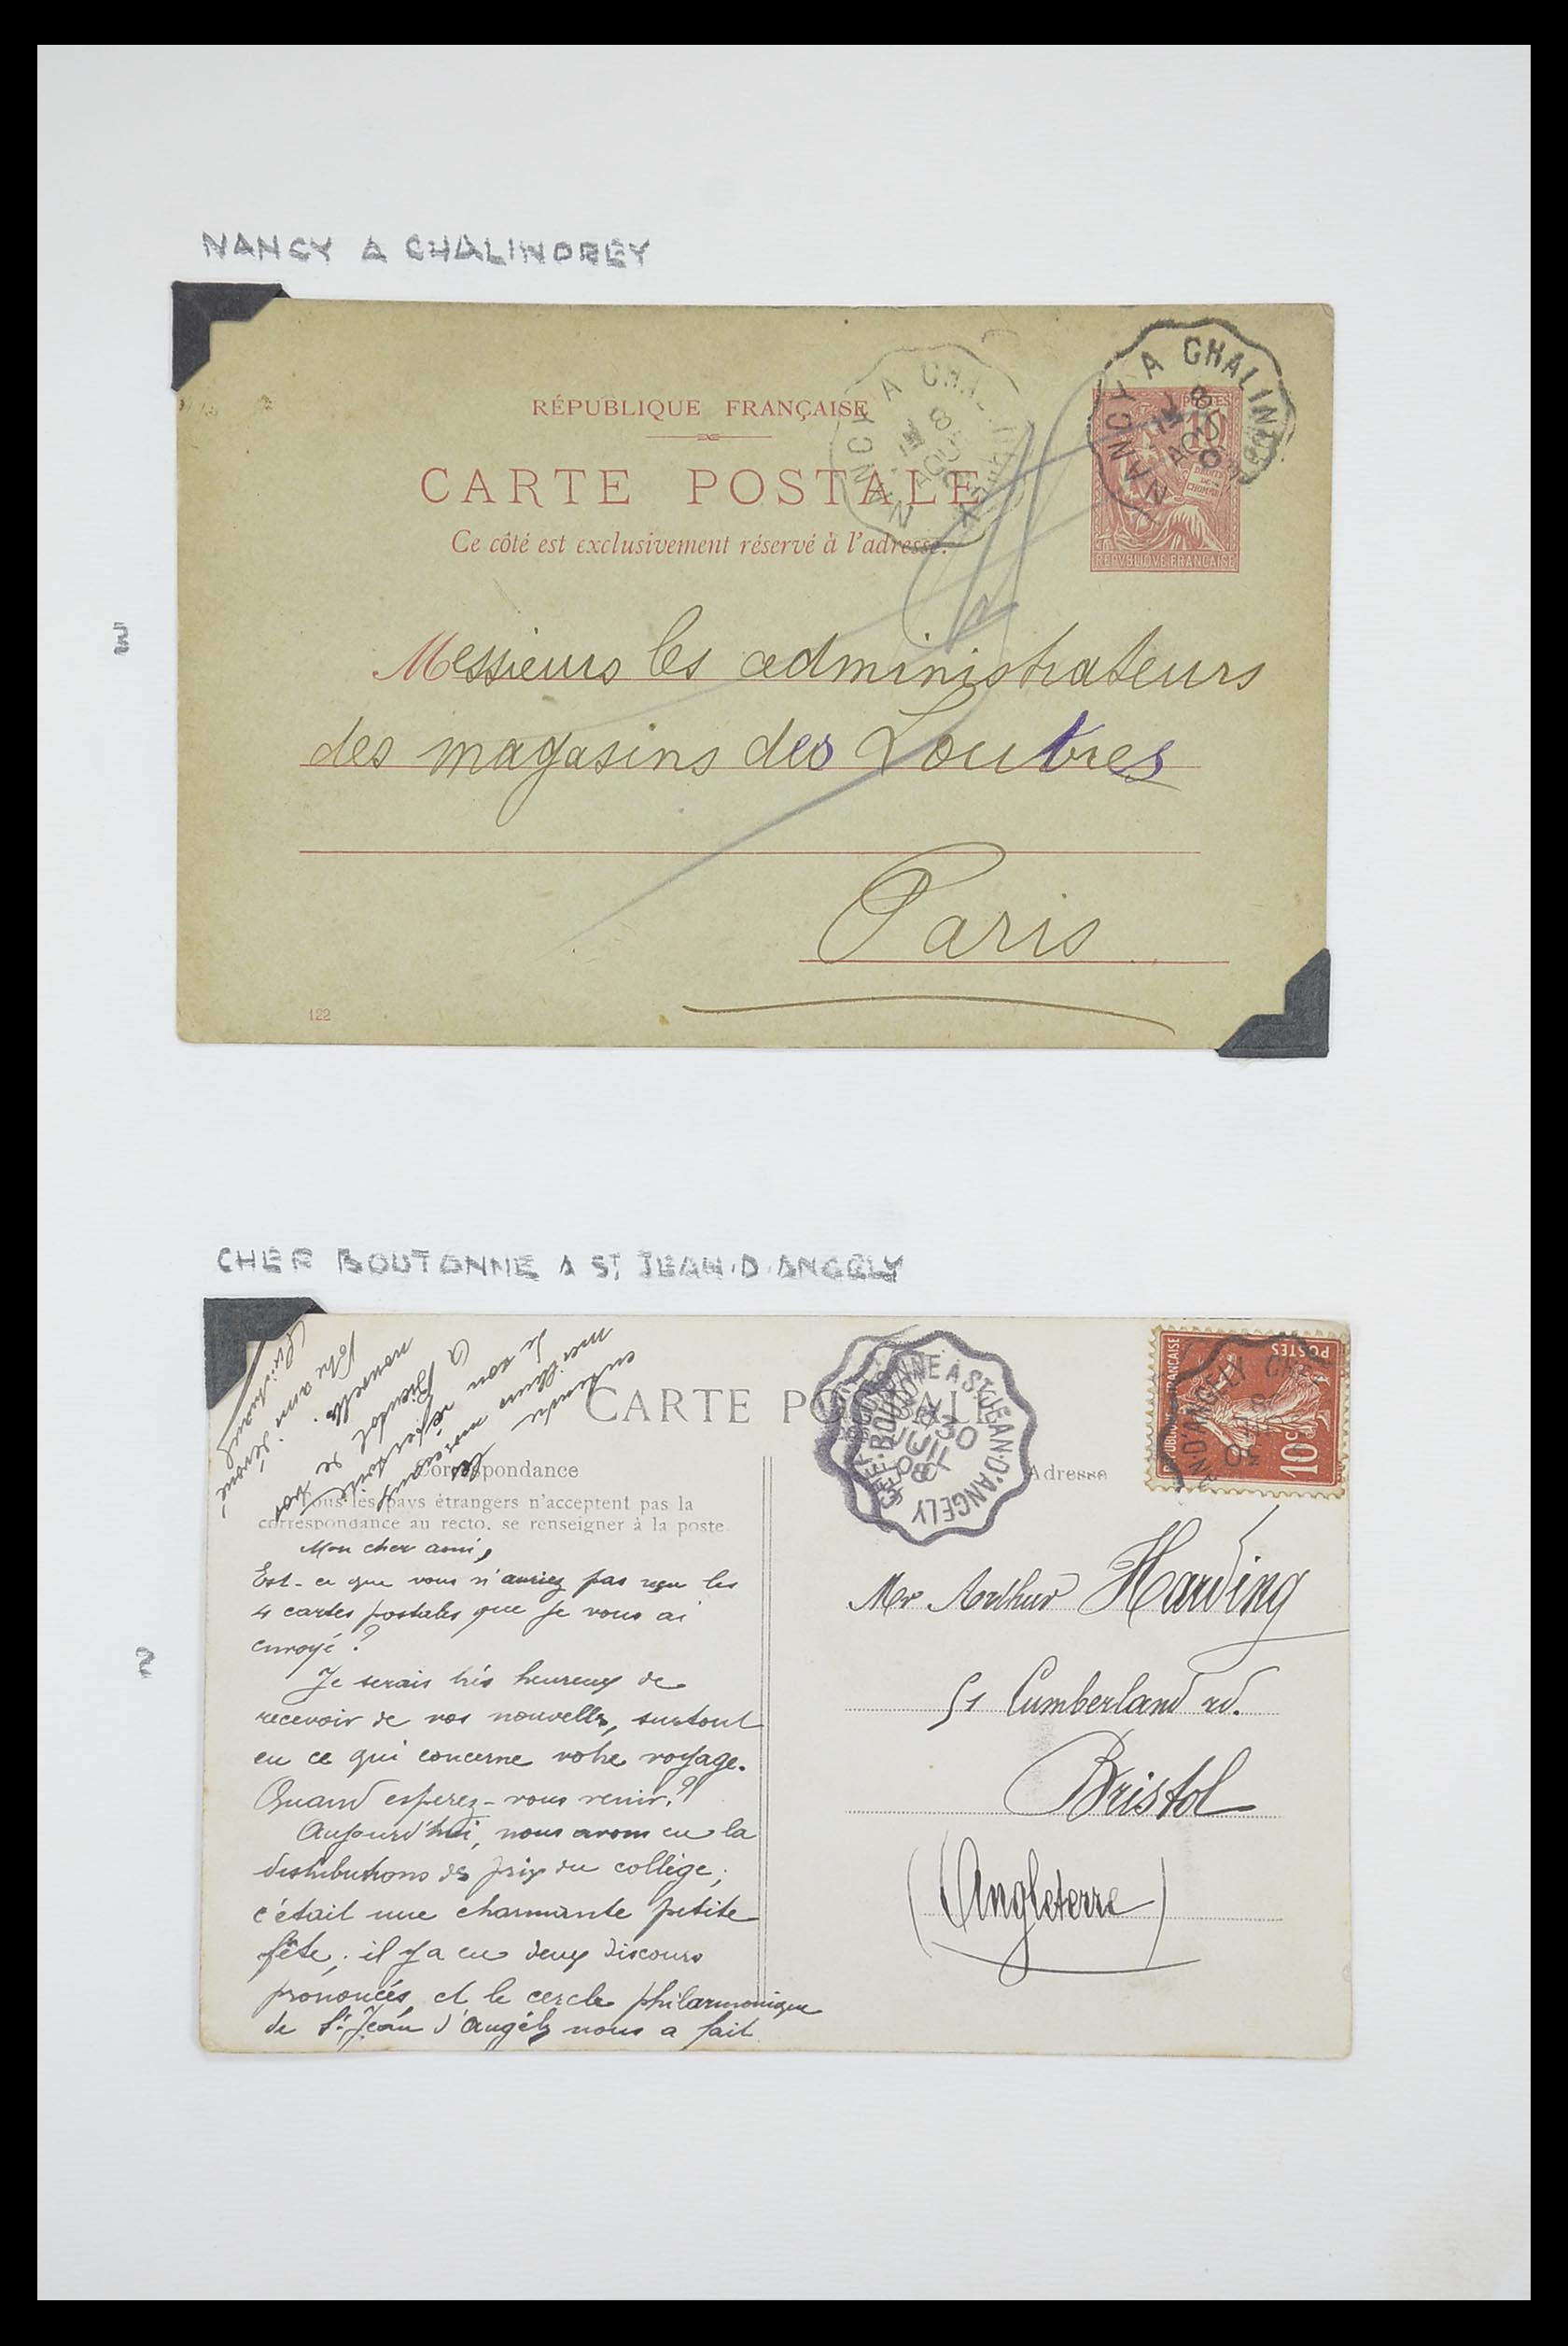 NANCY A CHALINDREY
RÉPUBLIQUE FRANÇAISE
CARTE POSTALE
Ce côté est exclusivement réservé à l'adresse.
NANCY A CHALINDREY
8
AOU
NANCY A CHALIND
8
AOU
POSTES
10
REPVBLIQVE FRANÇAISE
3
Messieurs les administrateurs
des magasins des Louvres
Paris
122
CHEF BOUTONNE A ST JEAN.D.ANGELY
CARTE POSTALE
Correspondance
Adresse
Tous les pays étrangers n'acceptent pas la
correspondance au recto, se renseigner à la poste.
CHEF-BOUTONNE A ST JEAN-D'ANGELY
30
JUIL
08
REPUBLIQUE FRANÇAISE
POSTES
10c
2
Mon cher ami,
Est-ce que vous n'auriez pas reçu les
4 cartes postales que je vous ai
envoyé ?
Je serais très heureux de
recevoir de vos nouvelles, surtout
en ce qui concerne votre voyage.
Quand esperez-vous venir ?
Aujourd'hui, nous avons eu la
distributions des prix du collège ;
c'était une charmante petite
fête ; il y a eu deux discours
prononcés, et le cercle philarmonique
de St Jean d'Angély nous a fait
entendre les
meilleurs morceaux
de son répertoire
A Bientôt de vos
nouvelles.
Votre ami dévoué
Mr Arthur Harding
51 Cumberland rd.
Bristol
(Angleterre)